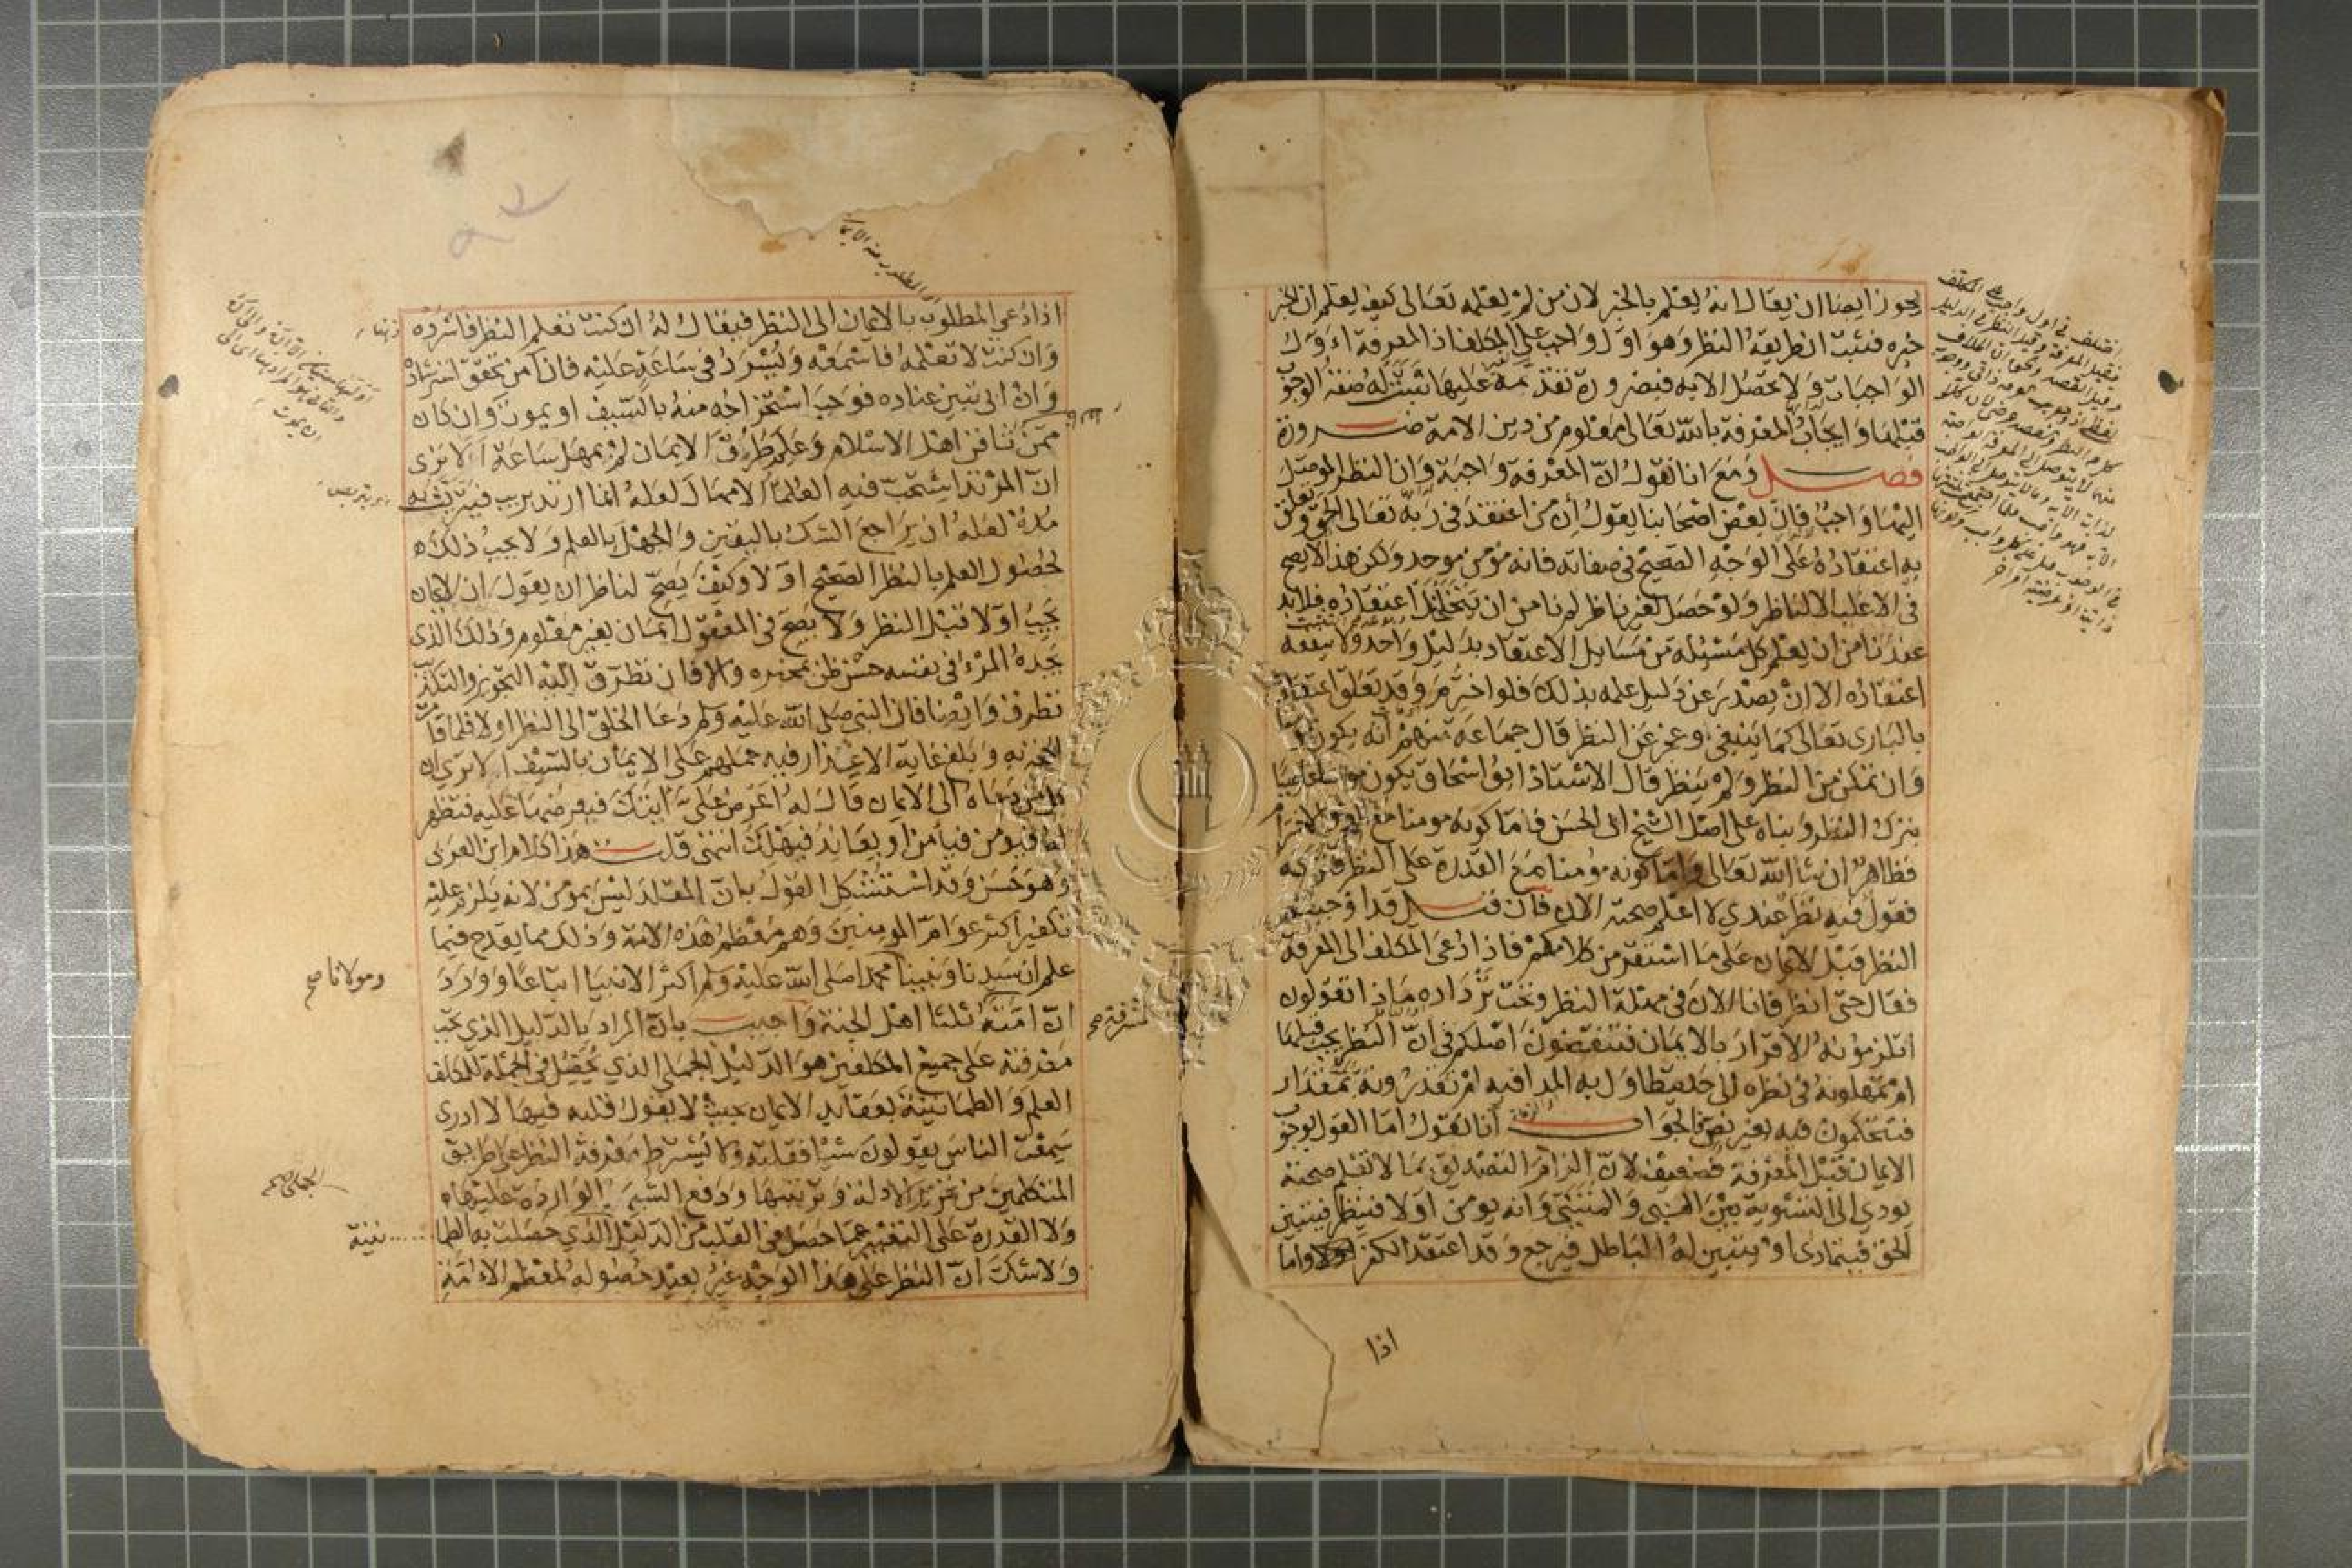 يجوز ايضا ان يقال انه يعلم بالخبر لان من لم يعلمه تعالى كيف يعلم ان الخبر
خبره فثبت ان طريقه النظر وهو اول واجب على المكلف اذ المعرفة اول
الواجبات ولا تحصل الا به فبضرورة تقدمه عليها تثبت له صفة الوجوب
قبلها وايجاب المعرفة بالله تعالى معلوم من دين الامة ضرورة
فصل ومع انا نقول ان المعرفة واجبة وان النظر الموصل
اليها واجب فان بعض اصحابنا يقول ان من اعتقد في ربه تعالى الحق وتعلق
به اعتقاده على الوجه الصحيح في صفاته فانه مؤمن موحد ولكن هذا لا يصح
في الاغلب الا لناظر ولو حصل لغير ناظر لم نامن ان يتخلخل اعتقاده فلا بد
عندنا من ان يعلم كل مسئلة من مسايل الاعتقاد بدليل واحد ولا ينفعه
اعتقاده الا ان يصدر عن دليل علمه بذلك فلو اخترم وقد تعلق اعتقاده
بالباري تعالى كما ينبغي وعجز عن النظر قال جماعة منهم انه يكون مؤمنا
وان تمكن من النظر ولم ينظر قال الاستاذ ابو اسحاق يكون مؤمنا عاصيا
بترك النظر وبناه على اصل الشيخ ابى الحسن فاما كونه مومنا مع العجز والاخترام
فظاهر ان شا الله تعالى واما كونه مؤمنا مع القدرة على النظر فتركه
فقول فيه نظر عندي لا اعلم صحته الان فان قيل قد اوجبتم
النظر قبل الايمان على ما استقر من كلامكم فاذا دعى المكلف الى المعرفة
فقال حتى انظر فانا الان في مهلة النظر وتحت ترداده ماذا تقولون
اتلزمونه الاقرار بالايمان فتنقضون اصلكم في ان النظر يجب قبلها
ام تمهلونه في نظره الى حد يتطاول به المدا فيه ام تقدرونه بمقدار
فتتحكمون فيه بغير نص فالجواب انا نقول اما القول بوجوب
الايمان قبل المعرفة فضعيف لان الزام التصديق بما لا تعلم صحته
يودي الى التسوية بين النبي والمتنبي وانه يومن اولا فينظر فيتبين
الحق فيتمادى او يتبين له الباطل فيرجع وقد اعتقد الكفر واما
اذا
اذا دعي المطلوب بالايمان الى النظر فيقال له ان كنت تعلم النظر فاسرده
وان كنت لا تعلمه فاسمعه ويسرد في ساعة عليه فان امن تحقق استرشاده
وان ابى تبين عناده فوجب استخراجه منه بالسيف او يموت وان كان
ممن ثافن اهل الاسلام وعلم طرق الايمان لم يمهل ساعة الا ترى
ان المرتد استحب فيه العلماء الامهال لعله انما ارتد بريب فيتربص به
مدة لعله ان يراجع الشك باليقين والجهل بالعلم ولا يجب ذلك
لحصول العلم بالنظر الصحيح اولا وكيف يصح لناظر ان يقول ان الايمان
يجب اولا قبل النظر ولا يصح في المعقول ايمان بغير معلوم وذلك الذي
يجده المرء في نفسه حسن ظن بمخبره والا فان تطرق اليه التجويز والتكذيب
تطرق وايضا فان النبي صلى الله عليه وسلم دعا الخلق الى النظر اولا فلما قامت
الحجة به وبلغ غاية الاعذار فيه حملهم على الايمان بالسيف الا ترى ان
كل من دعاه الى الايمان قال له اعرض علي ايتك فيعرضها عليه فتظهر
له فيؤمن فيامن او يعاند فيهلك انتهى قلت هذا كلام ابن العربى
وهو حسن وقد استشكل القول بان المقلد ليس بمؤمن لانه يلزم عليه
تكفير اكثر عوام المومنين وهم معظم هذه الامة وذلك مما يقدح فيما
علم ان سيدنا ونبينا محمدا صلى الله عليه وسلم اكثر الانبيا اتباعا وورد
ان امته ثلثا اهل الجنة واجيب بان المراد بالدليل الذي تجب
معرفته على جميع المكلفين هو الدليل الجملي الذي يحصل في الجملة للمكلف
العلم والطمانينة بعقايد الايمان بحيث لا يقول قلبه فيها لا ادرى
سمعت الناس يقولون شيئا فقلته ولا يشترط معرفة النظر على طريق
المتكلمين من تحرير الادلة وترتيبها ودفع الشبه الواردة عليها
ولا القدرة على التعبير عما حصل في القلب من الدليل الذي حصلت به الطما
نينة
ولا شك ان النظر على هذا الوجه غير بعيد حصوله لمعظم الامة
ومولانا صح
المشرفة صح